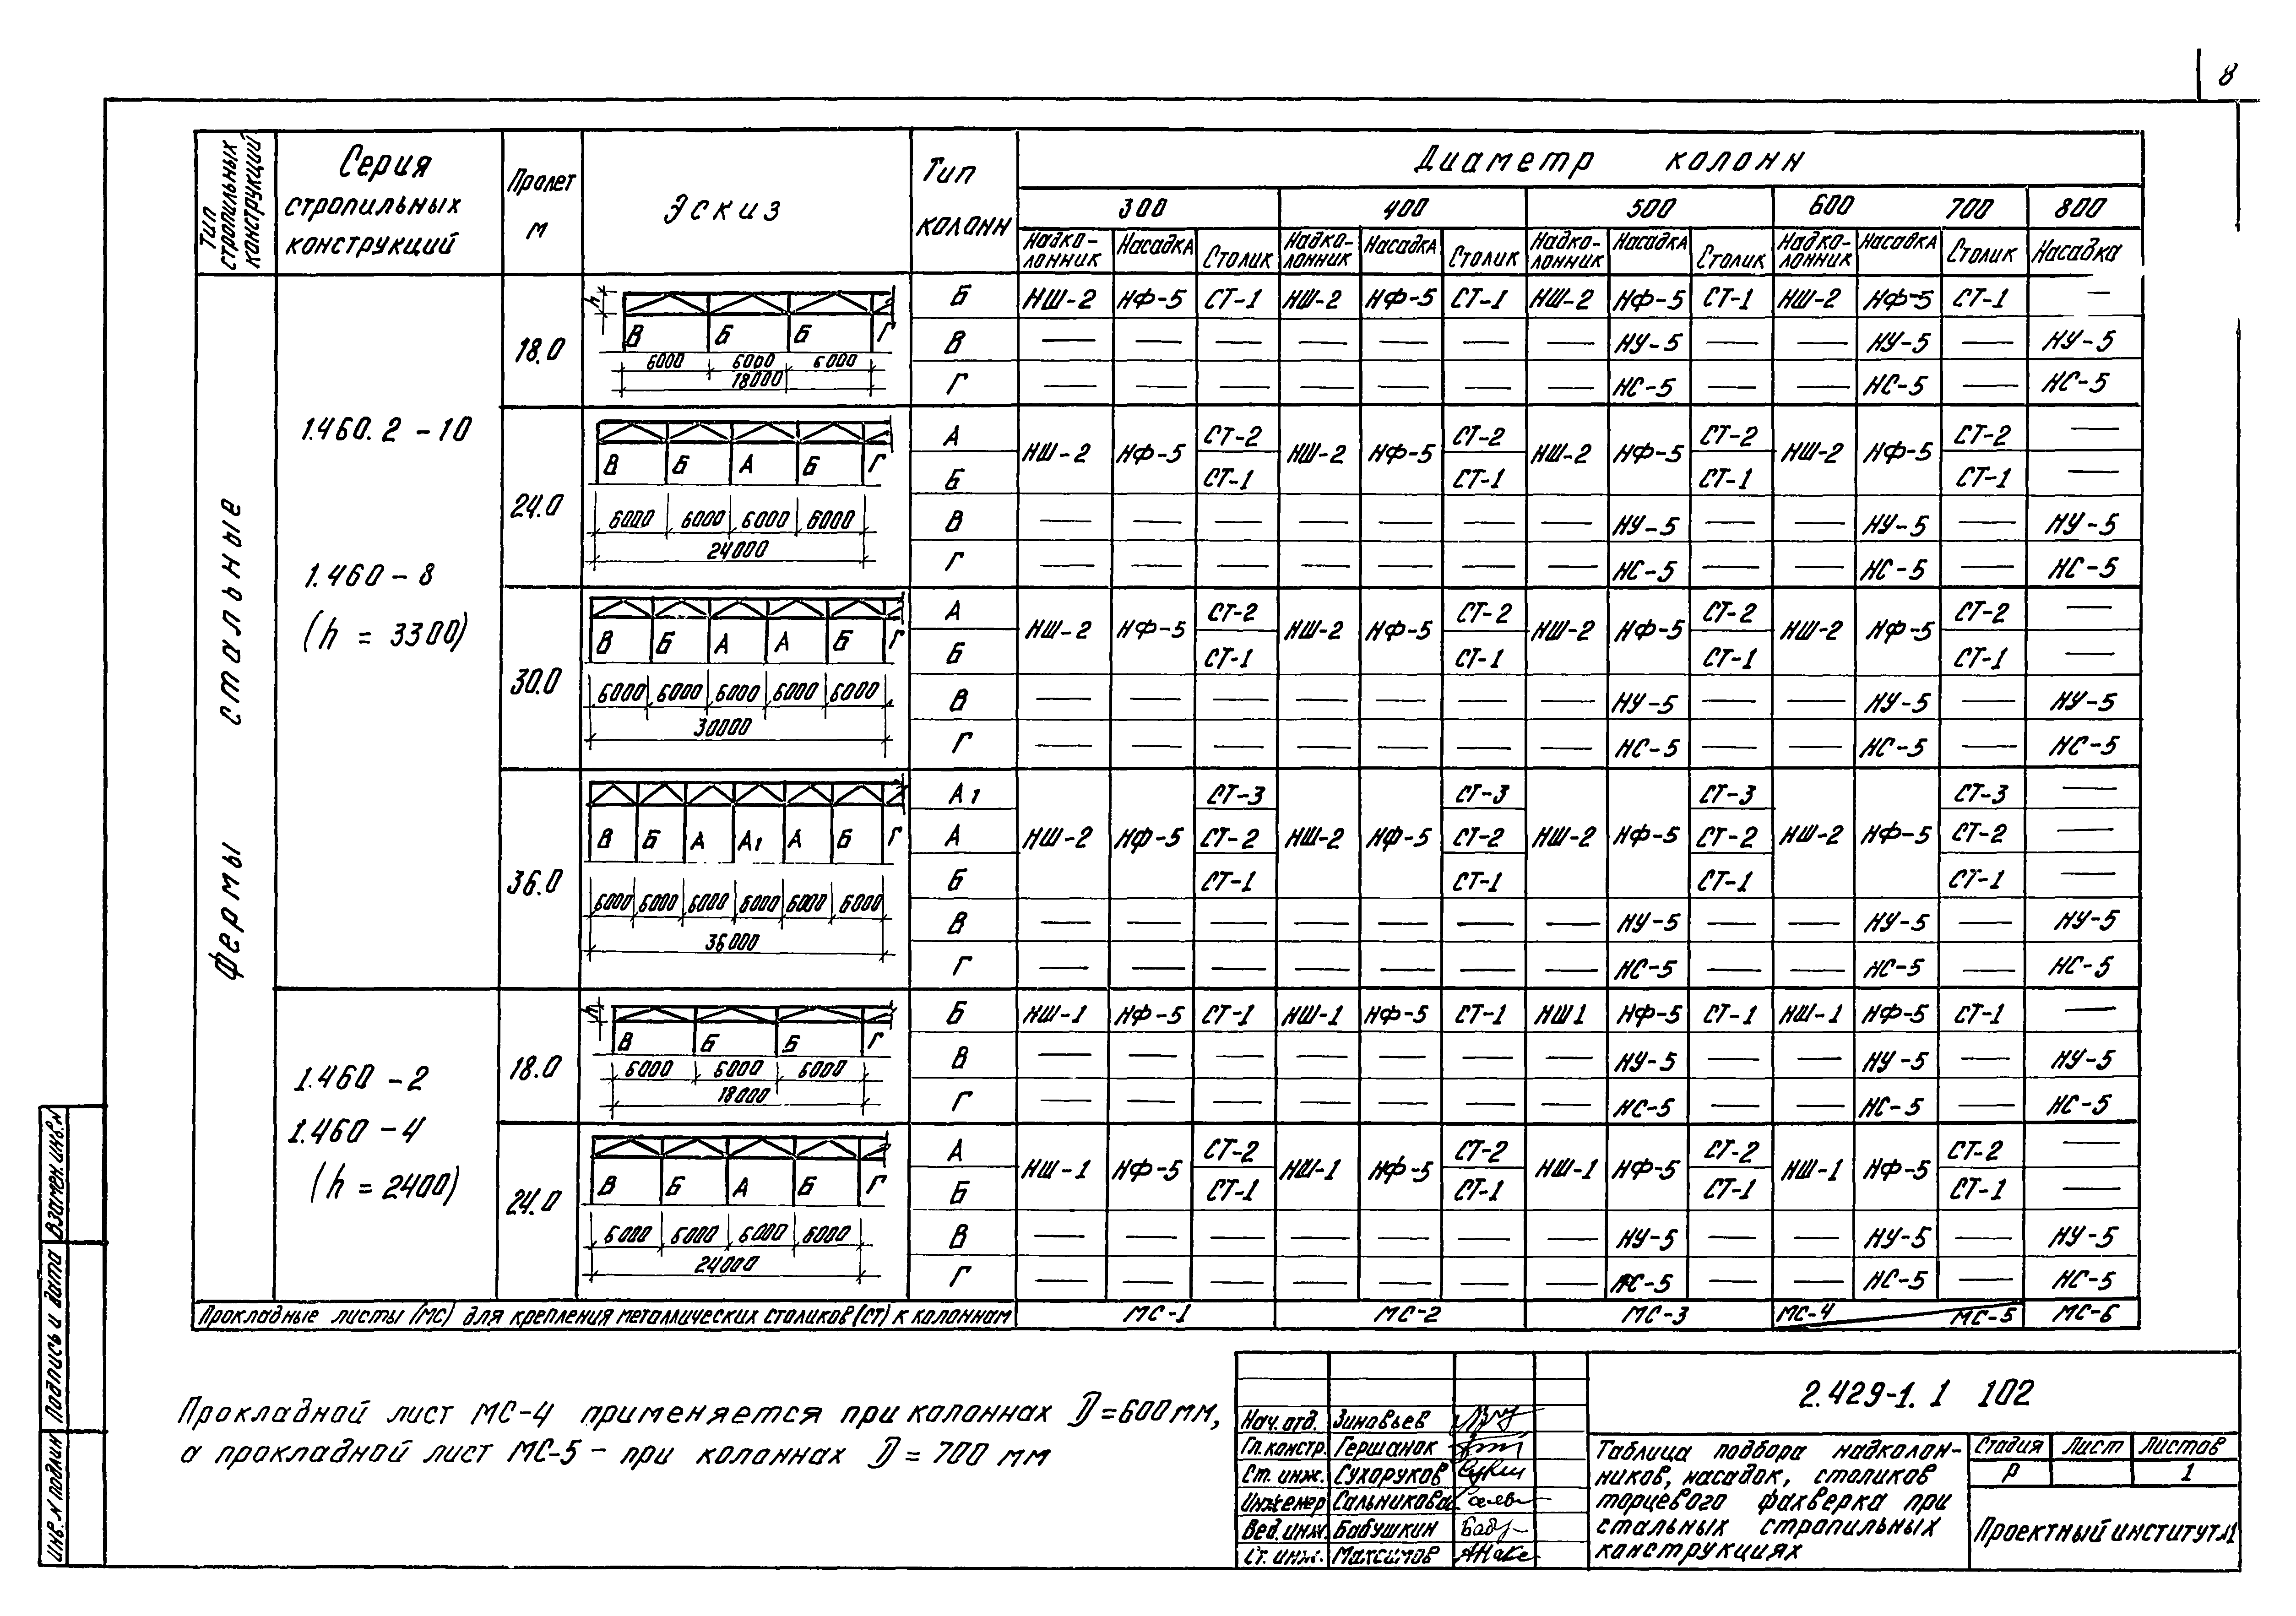 8
Тип стропильных конструкций
Серия стропильных конструкций
Пролет м
Эскиз
Тип колонн
Диаметр колонн
300 400 500 600 700 800
Надко-лонник Насадка Столик Надко-лонник Насадка Столик Надко-лонник Насадка Столик Надко-лонник Насадка Столик Насадка
Фермы стальные
1.460.2-10
1.460-8
(h = 3300)
18.0
h
В Б Б Г
6000 6000 6000
18000
Б НШ-2 НФ-5 СТ-1 НШ-2 НФ-5 СТ-1 НШ-2 НФ-5 СТ-1 НШ-2 НФ-5 СТ-1 —
В — — — — — — — НУ-5 — — НУ-5 — НУ-5
Г — — — — — — — НС-5 — — НС-5 — НС-5
24.0
В Б А Б Г
6000 6000 6000 6000
24000
А НШ-2 НФ-5 СТ-2 НШ-2 НФ-5 СТ-2 НШ-2 НФ-5 СТ-2 НШ-2 НФ-5 СТ-2 —
Б СТ-1 СТ-1 СТ-1 СТ-1 —
В — — — — — — — НУ-5 — — НУ-5 — НУ-5
Г — — — — — — — НС-5 — — НС-5 — НС-5
30.0
В Б А А Б Г
6000 6000 6000 6000 6000
30000
А НШ-2 НФ-5 СТ-2 НШ-2 НФ-5 СТ-2 НШ-2 НФ-5 СТ-2 НШ-2 НФ-5 СТ-2 —
Б СТ-1 СТ-1 СТ-1 СТ-1 —
В — — — — — — — НУ-5 — — НУ-5 — НУ-5
Г — — — — — — — НС-5 — — НС-5 — НС-5
36.0
В Б А А1 А Б Г
6000 6000 6000 6000 6000 6000
36000
А1 СТ-3 СТ-3 СТ-3 СТ-3 —
А НШ-2 НФ-5 СТ-2 НШ-2 НФ-5 СТ-2 НШ-2 НФ-5 СТ-2 НШ-2 НФ-5 СТ-2 —
Б СТ-1 СТ-1 СТ-1 СТ-1 —
В — — — — — — — НУ-5 — — НУ-5 — НУ-5
Г — — — — — — — НС-5 — — НС-5 — НС-5
1.460-2
1.460-4
(h = 2400)
18.0
h
В Б Б Г
6000 6000 6000
18000
Б НШ-1 НФ-5 СТ-1 НШ-1 НФ-5 СТ-1 НШ1 НФ-5 СТ-1 НШ-1 НФ-5 СТ-1 —
В — — — — — — — НУ-5 — — НУ-5 — НУ-5
Г — — — — — — — НС-5 — — НС-5 — НС-5
24.0
В Б А Б Г
6000 6000 6000 6000
24000
А НШ-1 НФ-5 СТ-2 НШ-1 НФ-5 СТ-2 НШ-1 НФ-5 СТ-2 НШ-1 НФ-5 СТ-2 —
Б СТ-1 СТ-1 СТ-1 СТ-1 —
В — — — — — — — НУ-5 — — НУ-5 — НУ-5
Г — — — — — — — НС-5 — — НС-5 — НС-5
Прокладные листы (МС) для крепления металлических столиков (СТ) к колоннам МС-1 МС-2 МС-3 МС-4 МС-5 МС-6
Прокладной лист МС-4 применяется при колоннах D=600мм,
а прокладной лист МС-5 – при колоннах D = 700 мм
Нач. отд. Зиновьев
Гл. констр. Гершанок
Ст. инж. Сухоруков
Инженер Сальникова
Вед. инж. Бабушкин
Ст. инж. Максимов
2.429-1. 1 102
Таблица подбора надколон-
ников, насадок, столиков
торцевого фахверка при
стальных стропильных
конструкциях
Стадия Лист Листов
Р 1
Проектный институт №1
Взамен. инв. №
Подпись и дата
Инв. № подлин